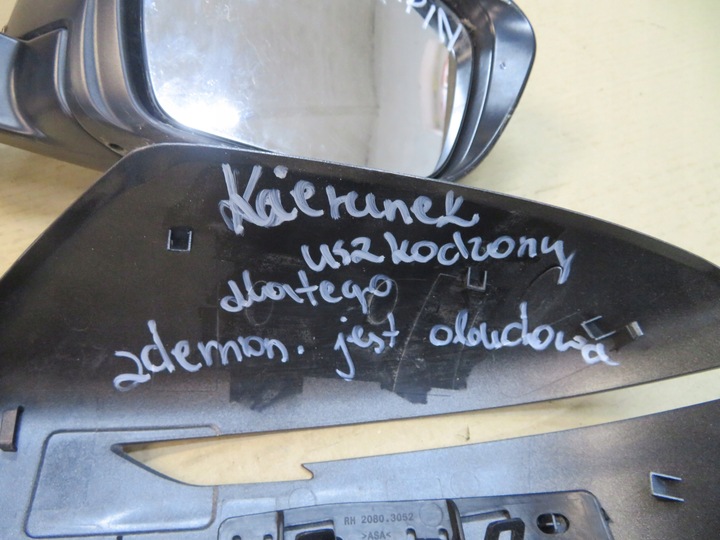 PIN
Kierunek
uszkodzony
dlatego
zdemon. jest obudowa
RH 2080.3052
>ASA<